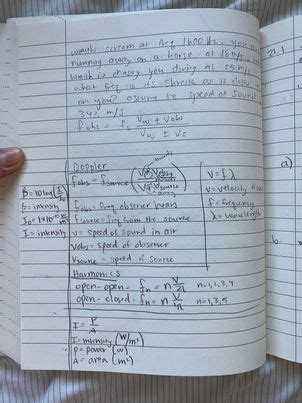 wraith: scream at freq 1600 Hz. you are
running away on a horse at 16 m/s. the
wraith is chasing you diving at 25 m/s
what freq is its shriek as it dives
on you? assume the speed of sound
342 m/s
f obs = fs Vw ± Vobs
Vw ± Vs
Doppler
towards
fobs = fsource (V ± Vobserver / V ∓ Vsource)
away
fobs: freq observer hears
fsource = freq from the source
v = speed of sound in air
Vobs = speed of observer
Vsource = speed of source
V = fλ
V = velocity
f = frequency
λ = wavelength
B = 10 log (I/Io)
b = intensity
Io = 1×10⁻¹²
I = intensity
Harmonics
open-open = fn = n V/2l n=1,2,3,4
open-closed = fn = n V/4l n=1,3,5
I = P/A
I = intensity (W/m²)
P = power (W)
A = area (m²)
21.1
a)
b.